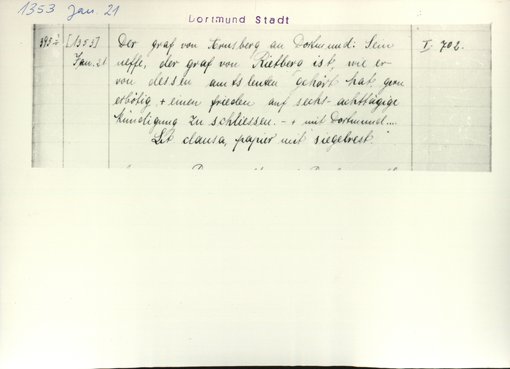 1353 Jan. 21
Dortmund Stadt
395 2/2 [1353] Der graf von Arnsberg an Dortmund: Sein I. 702.
Jan. 21 neffe, der graf von Rietberg ist, wie er
von dessen amtsleuten gehört hat, gern
erbötig, + einen frieden auf sechs-achttägige
kündigung zu schliessen. - + mit Dortmund....
Lit clausa, papier mit siegelrest.